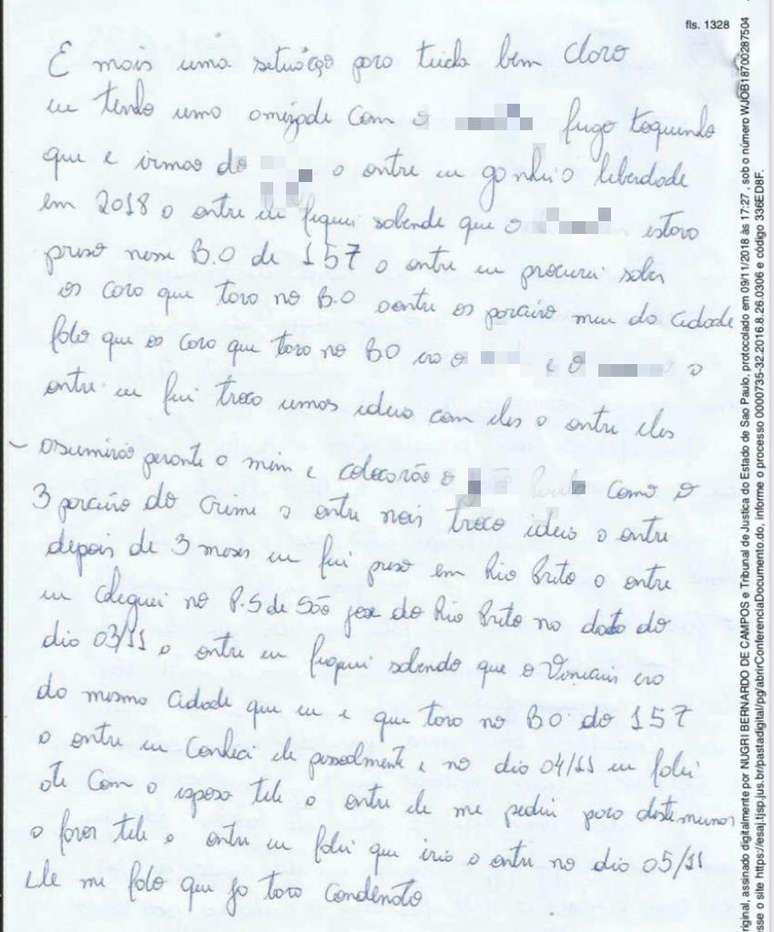 fls. 1328
E mais uma setuáçao para tuida bem claro
eu tendo uma amizade com o fugo toquendo
que e irmao do o antre eu gonheio liberdade
em 2018 o antre eu fiquei sabende que o estava
preso nesse B.O de 157 o antre eu procurei saber
os cara que tava no B.O os parceiro meu da cidade
falo que os cara que tava no BO era o e o o
antre eu fui troca umas ideia com eles o antre eles
asumirão perante o mim e colocarão o como o
3 parceiro do crime o antre nois troco ideia o antre
depois de 3 meses eu fui preso em Rio Preto o antre
eu cheguei no P.S de São jose do Rio Preto no data do
dia 03/11 o antre eu fiquei sabendo que o era
da mesma cidade que eu e que tava no BO do 157
o antre eu conheci ele pessoalmente e no dia 04/11 eu falei
ate com o esposa tele o antre ele me pediu para
o favor tele o antre eu falei que iria o antre no dia 05/11
ele me falo que ja tava condenato
riginal, assinado digitalmente por NUGRI BERNARDO DE CAMPOS e Tribunal de Justica do Estado de Sao Paulo, protocolado em 09/11/2018 às 17:27 , sob o número WJOB18700287504
esse o site https://esaj.tjsp.jus.br/pastadigital/pg/abrirConferenciaDocumento.do, informe o processo 0000735-32.2016.8.26.0306 e código 336ED8F.